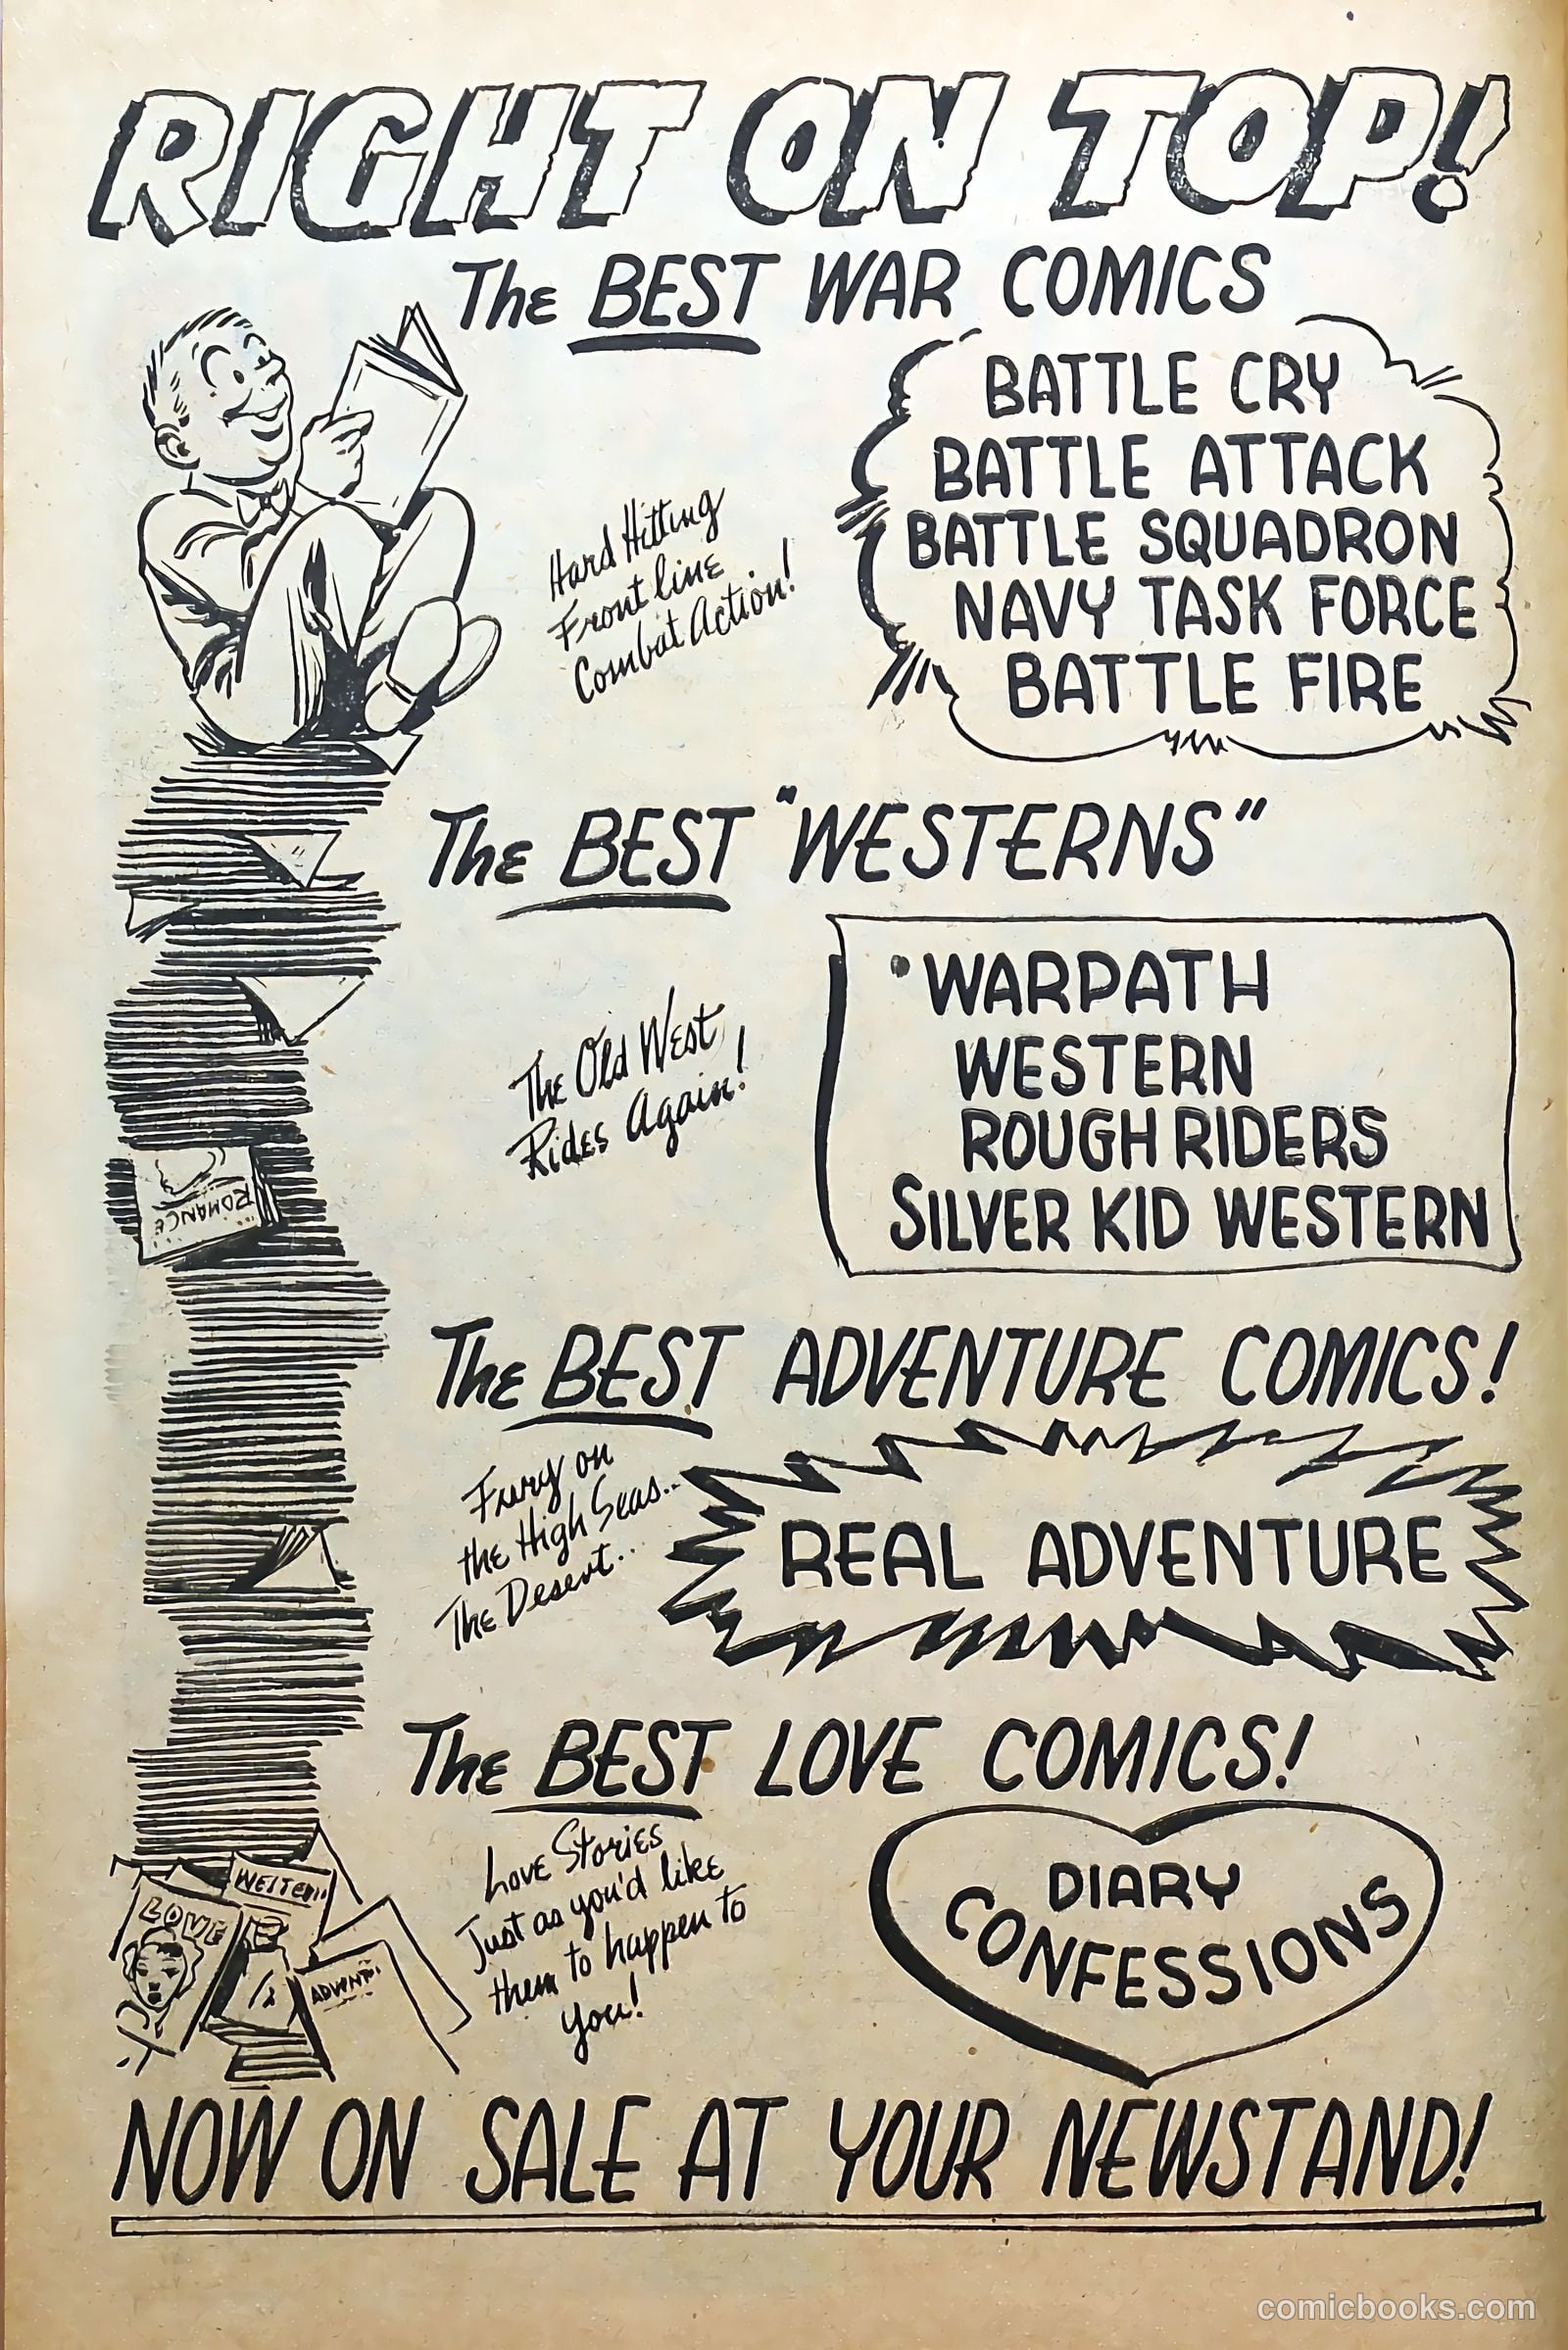 RIGHT ON TOP!
The BEST WAR COMICS
Hard Hitting
Front line
Combat Action!
BATTLE CRY
BATTLE ATTACK
BATTLE SQUADRON
NAVY TASK FORCE
BATTLE FIRE
The BEST "WESTERNS"
The Old West
Rides Again!
•WARPATH
WESTERN
ROUGH RIDERS
SILVER KID WESTERN
ROMANCE
The BEST ADVENTURE COMICS!
Fury on
the High Seas..
The Desert..
REAL ADVENTURE
The BEST LOVE COMICS!
Love Stories
Just as you'd like
them to happen to
you!
DIARY
CONFESSIONS
WESTERN
LOVE
ADVENT
NOW ON SALE AT YOUR NEWSTAND!
comicbooks.com